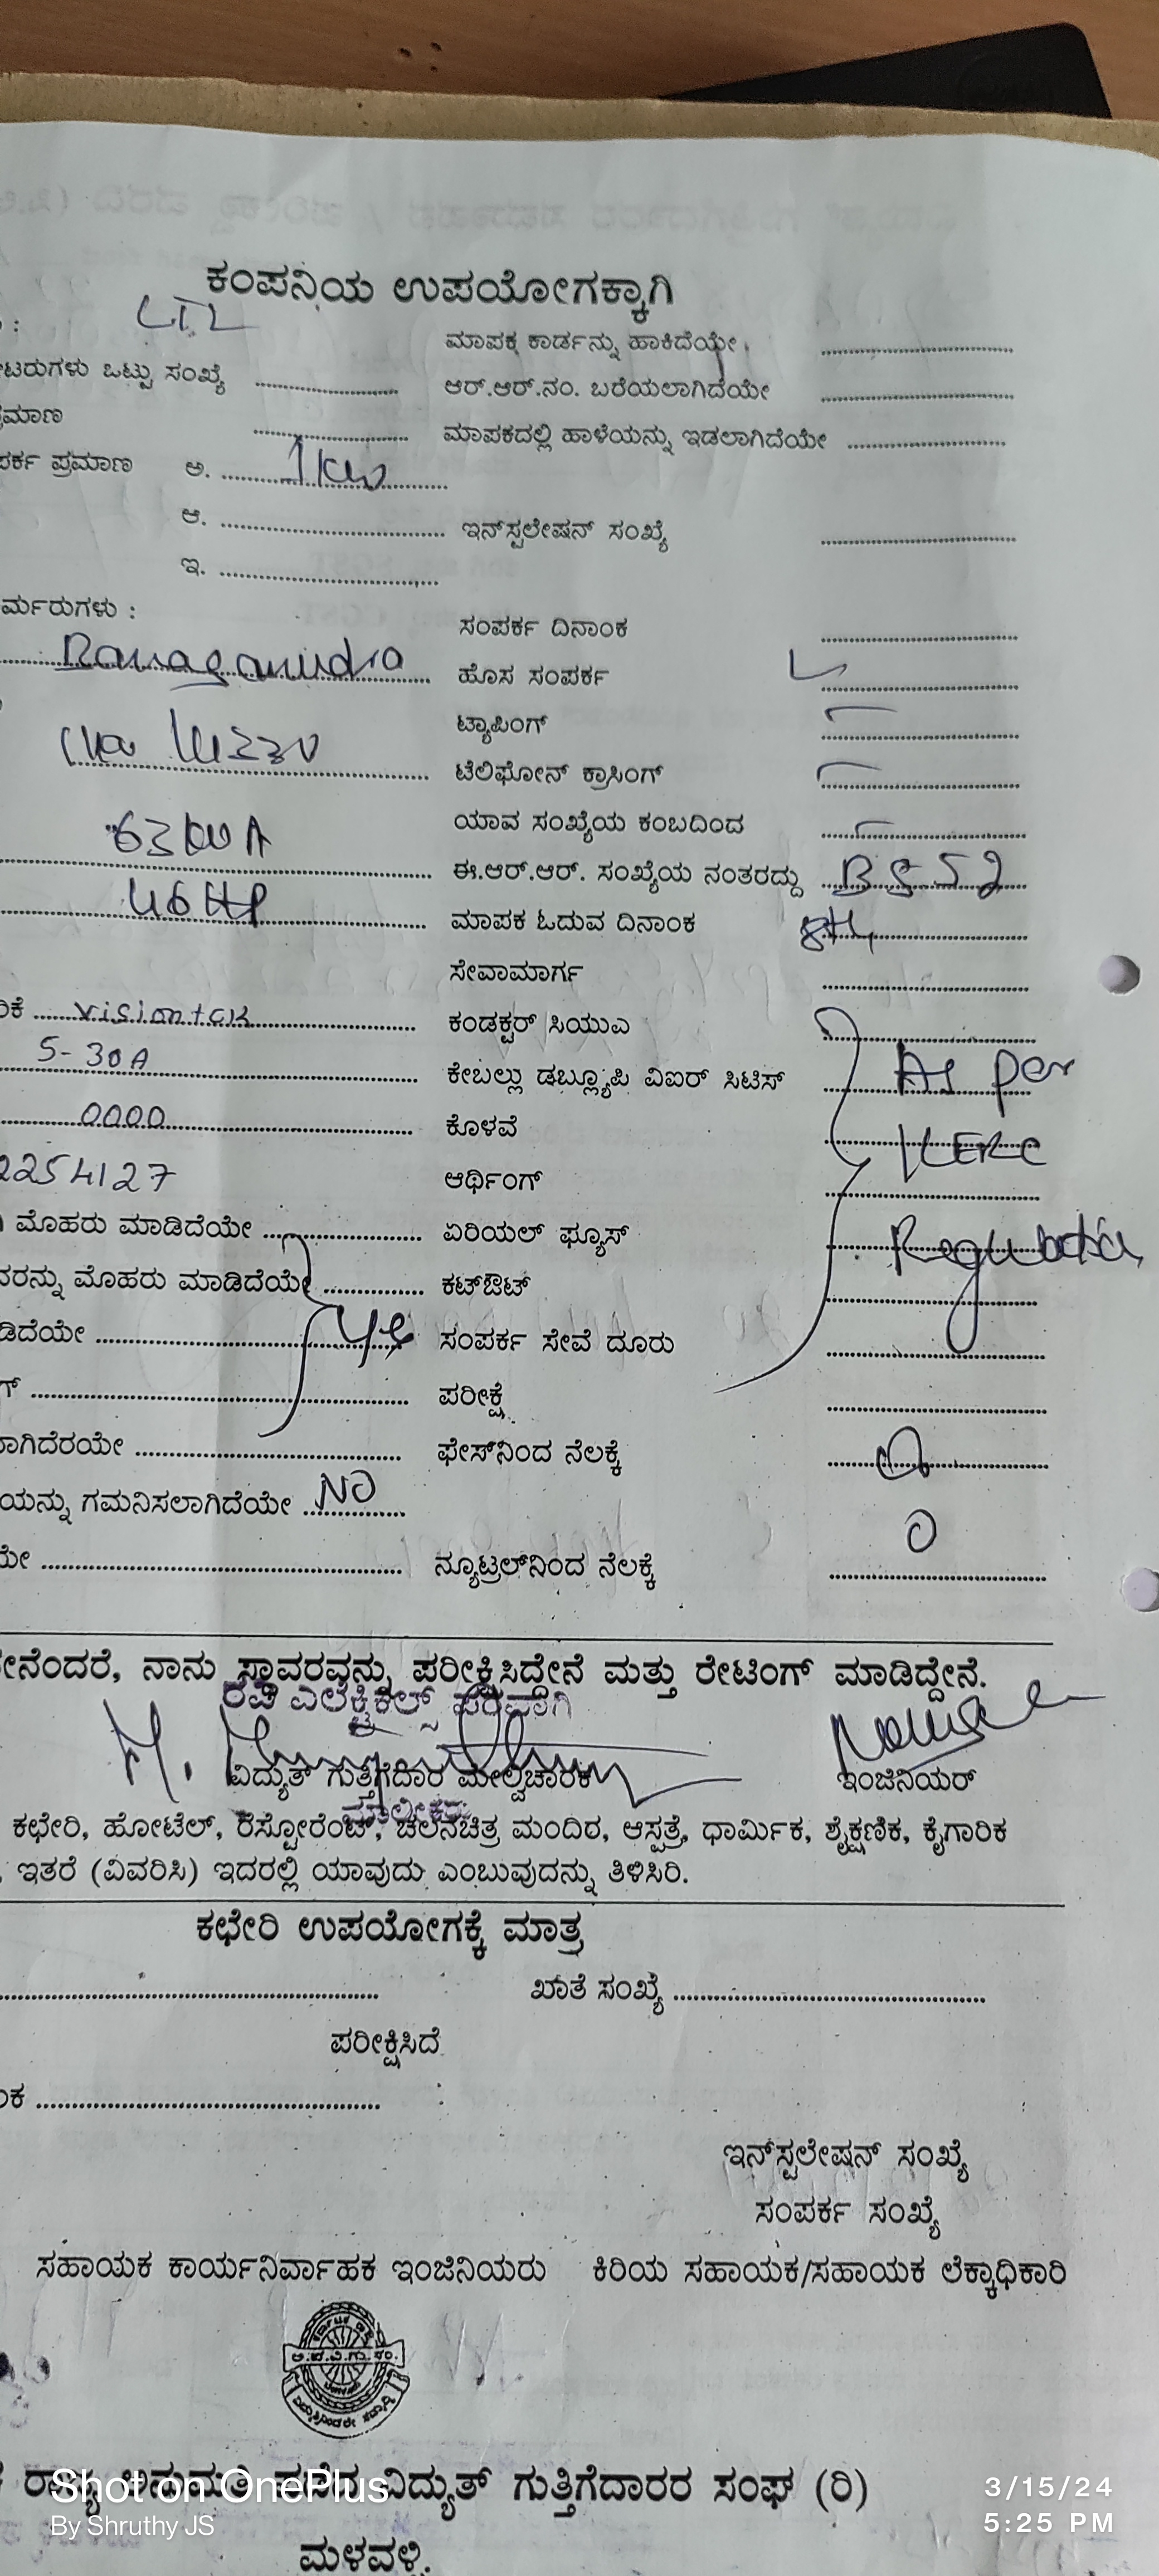 ಕಂಪನಿಯ ಉಪಯೋಗಕ್ಕಾಗಿ
: LT2
ಮಾಪಕ ಕಾರ್ಡನ್ನು ಹಾಕಿದೆಯೇ ....................
ಟರುಗಳು ಒಟ್ಟು ಸಂಖ್ಯೆ .................... ಆರ್.ಆರ್.ನಂ. ಬರೆಯಲಾಗಿದೆಯೇ ....................
ಮಾಣ .................... ಮಾಪಕದಲ್ಲಿ ಹಾಳೆಯನ್ನು ಇಡಲಾಗಿದೆಯೇ ....................
ಪರ್ಕ ಪ್ರಮಾಣ ಅ. 1 KW
ಆ. .................... ಇನ್‌ಸ್ಟಲೇಷನ್ ಸಂಖ್ಯೆ ....................
ಇ. ....................
ರ್ಮರುಗಳು :
ಸಂಪರ್ಕ ದಿನಾಂಕ ....................
ಹೊಸ ಸಂಪರ್ಕ ....................
ಟ್ಯಾಪಿಂಗ್ ....................
ಟೆಲಿಫೋನ್ ಕ್ರಾಸಿಂಗ್ ....................
63 KVA ಯಾವ ಸಂಖ್ಯೆಯ ಕಂಬದಿಂದ ....................
ಈ.ಆರ್.ಆರ್. ಸಂಖ್ಯೆಯ ನಂತರದ್ದು BS52
46 HP ಮಾಪಕ ಓದುವ ದಿನಾಂಕ 8th
ಸೇವಾಮಾರ್ಗ ....................
ಿಕೆ visiontek ಕಂಡಕ್ಟರ್ ಸಿಯುಎ
5-30A ಕೇಬಲ್ಲು ಡಬ್ಲ್ಯೂಪಿ ವಿಐರ್ ಸಿಟಿಸ್ As per
0000 ಕೊಳವೆ KERC
2254127 ಆರ್ಥಿಂಗ್
ಮೊಹರು ಮಾಡಿದೆಯೇ .................... ಏರಿಯಲ್ ಫ್ಯೂಸ್
ವರನ್ನು ಮೊಹರು ಮಾಡಿದೆಯೇ .................... ಕಟ್‌ಔಟ್
ಡಿದೆಯೇ .................... ಸಂಪರ್ಕ ಸೇವೆ ದೂರು ....................
ಗ್ .................... ಪರೀಕ್ಷೆ ....................
ಾಗಿದೆರಯೇ .................... ಫೇಸ್‌ನಿಂದ ನೆಲಕ್ಕೆ
ಯನ್ನು ಗಮನಿಸಲಾಗಿದೆಯೇ NO
ಯೇ .................... ನ್ಯೂಟ್ರಲ್‌ನಿಂದ ನೆಲಕ್ಕೆ 0
ೇನೆಂದರೆ, ನಾನು ಸ್ಥಾವರವನ್ನು ಪರೀಕ್ಷಿಸಿದ್ದೇನೆ ಮತ್ತು ರೇಟಿಂಗ್ ಮಾಡಿದ್ದೇನೆ.
ರವಿ ಎಲೆಕ್ಟ್ರಿಕಲ್ಸ್ ಪರವಾಗಿ
ವಿದ್ಯುತ್ ಗುತ್ತಿಗೆದಾರ ಮೇಲ್ವಿಚಾರಕ ಇಂಜಿನಿಯರ್
ಮಾಲೀಕರು
ಕಛೇರಿ, ಹೋಟೆಲ್, ರೆಸ್ಟೋರೆಂಟ್, ಚಲನಚಿತ್ರ ಮಂದಿರ, ಆಸ್ಪತ್ರೆ, ಧಾರ್ಮಿಕ, ಶೈಕ್ಷಣಿಕ, ಕೈಗಾರಿಕ
, ಇತರೆ (ವಿವರಿಸಿ) ಇದರಲ್ಲಿ ಯಾವುದು ಎಂಬುವುದನ್ನು ತಿಳಿಸಿರಿ.
ಕಛೇರಿ ಉಪಯೋಗಕ್ಕೆ ಮಾತ್ರ
.................... ಖಾತೆ ಸಂಖ್ಯೆ ....................
ಪರೀಕ್ಷಿಸಿದೆ
ಂಕ ....................
ಇನ್‌ಸ್ಟಲೇಷನ್ ಸಂಖ್ಯೆ
ಸಂಪರ್ಕ ಸಂಖ್ಯೆ
ಸಹಾಯಕ ಕಾರ್ಯನಿರ್ವಾಹಕ ಇಂಜಿನಿಯರು ಕಿರಿಯ ಸಹಾಯಕ/ಸಹಾಯಕ ಲೆಕ್ಕಾಧಿಕಾರಿ
ರಾಜ್ಯ ಅನುಮತಿ ಪಡೆದ ವಿದ್ಯುತ್ ಗುತ್ತಿಗೆದಾರರ ಸಂಘ (ರಿ)
ಮಳವಳ್ಳಿ.
Shot on OnePlus
By Shruthy JS
3/15/24
5:25 PM